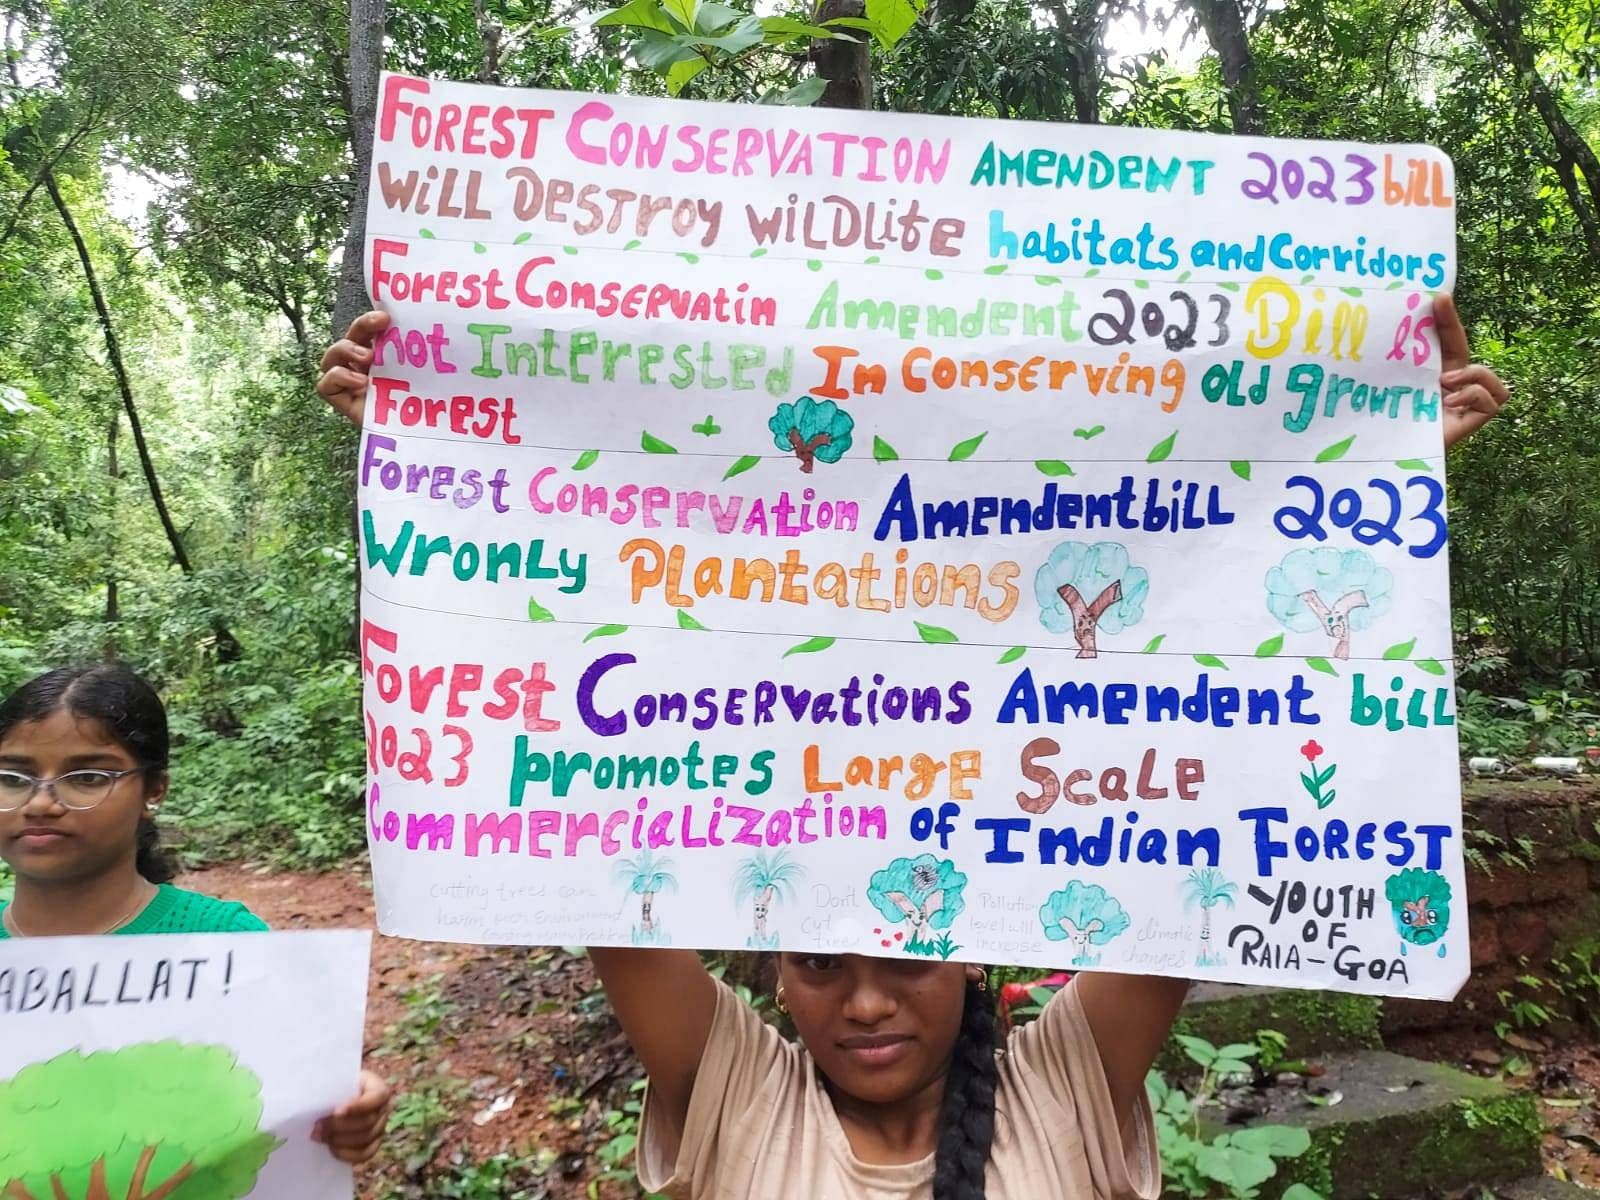 FOREST CONSERVATION AMENDENT 2023 bill
Will Destroy Wildlife habitats and Corridors
Forest Conservatin Amendent 2023 Bill is
not Interested In Conserving old growth
Forest
Forest Conservation Amendent bill 2023
Wronly Plantations
Forest Conservations Amendent bill
2023 promotes Large Scale
Commercialization of Indian Forest
cutting trees can
harm Environment
Don't
cut
trees
Pollution
level will
increase
climatic
changes
YOUTH
OF
RAIA-GOA
ABALLAT!